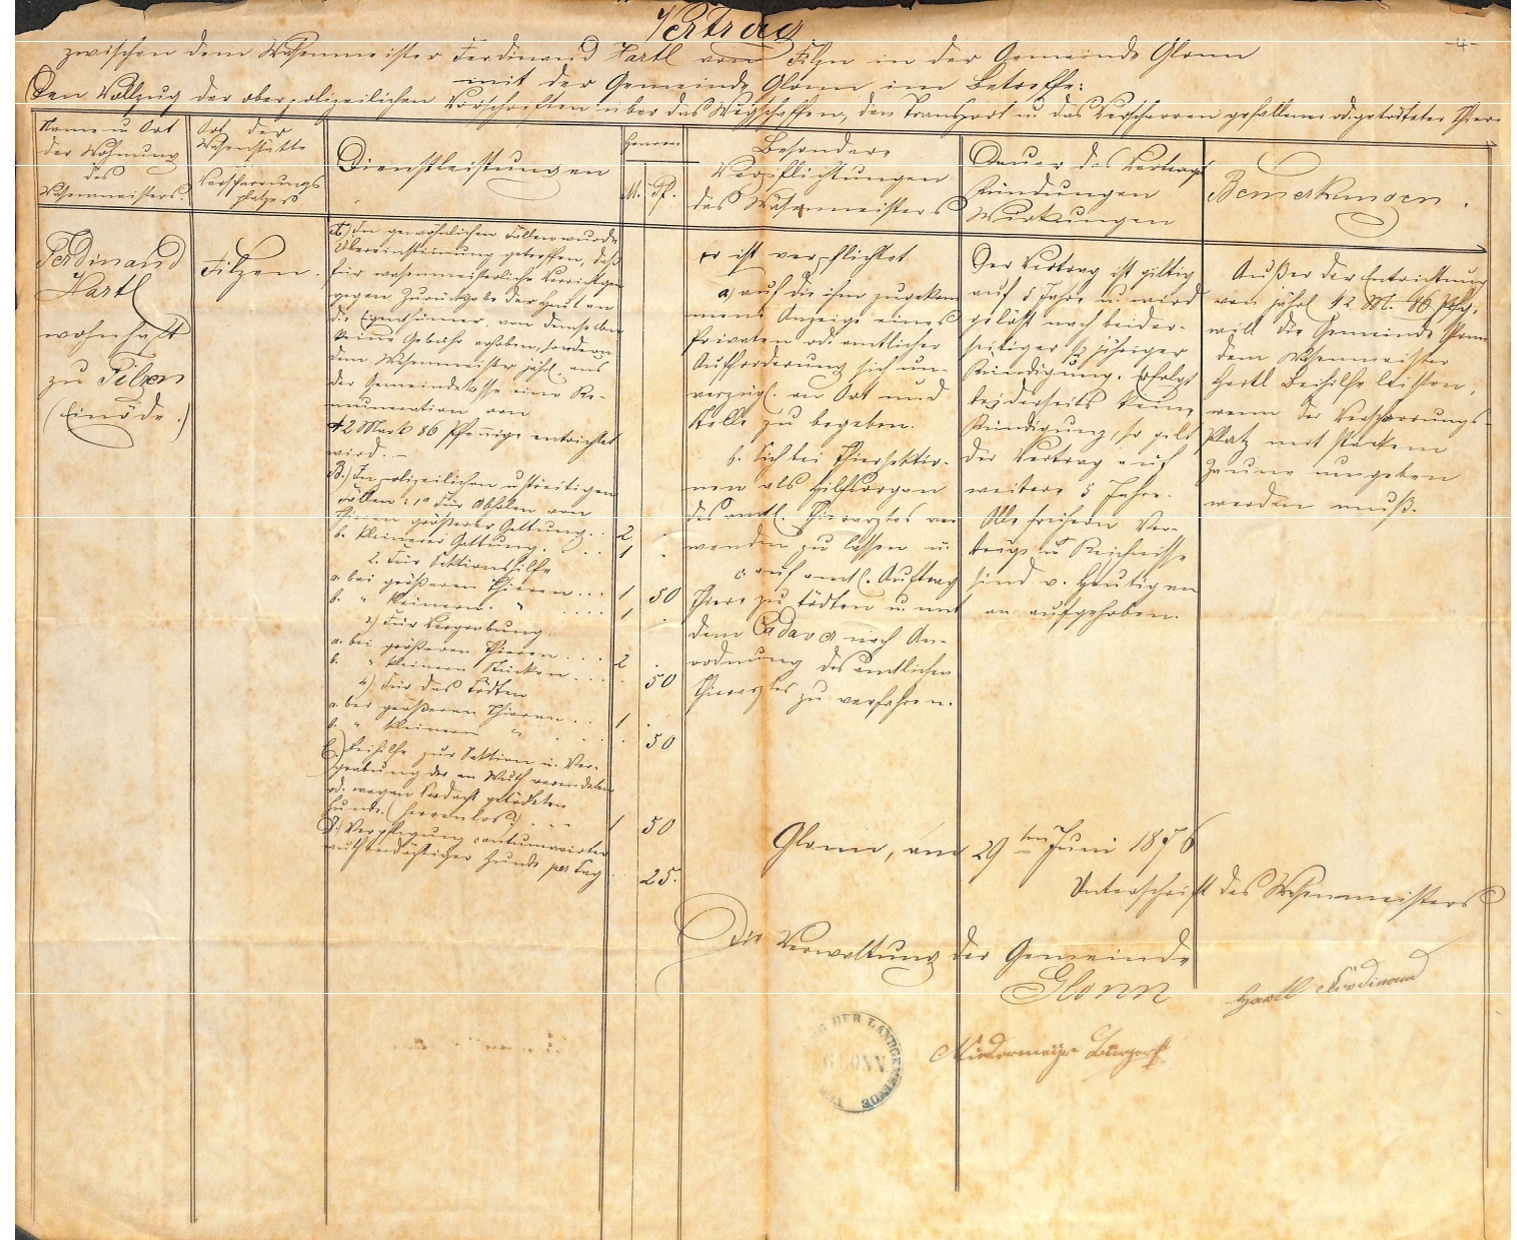 Vertrag
-4-
zwischen dem Wasenmeister Ferdinand Hartl von Filzn in der Gemeinde Glonn
mit der Gemeinde Glonn im Betreffe:
Den Vollzug der oberpolizeilichen Vorschriften über das Wegschaffen, den Transport u das Verscharren gefallener od. getödteter Thiere
Name u Ort
der Wohnung
des
Wasenmeisters.
Ort der
Wasenstätte
u
Verscharrungs
platzes
Dienstleistungen
M. Pf.
Besondere
Verpflichtungen
des Wasenmeisters
Dauer des Vertrags
Kündungen
Wirkungen
Bemerkungen.
Ferdinand
Hartl
wohnhaft
zu Filzen
(Einöde.)
Filzen.
A.) In gewöhnlichen Fällen wurde
Übereinstimung getroffen, daß
für wasenmeisterliche Verrichtgen
gegen Zurückgabe der Haut an
die Eigenthümer, von denselben
keine Gebühr erhoben, sondern
dem Wasenmeister jährl. aus
der Gemeindekasse eine Re-
muneration von
42 Mark 86 Pfennige entrichtet
wird. –
B.) In polizeilichen u streitigen
Fällen: 1º Für Abholen von
Thieren größerer Gattung. . 2 .
b. kleinerer Gattung. . . . 1 .
2. Für Sektionshilfe
a. bei größeren Thieren . . . 1 50
b. " kleinern " . . . . 1 .
3) Für Vergrabung.
a. bei größeren Thieren . . . 2 .
b. " kleinern Stücken . . . . 50
4) Für das Tödten
a. bei größeren Thieren . . 1 .
b. " kleinern " . . . . 50
C.) Beihilfe zur Sektion u. Ver-
grabung der an Wuth verendeten
od. wegen Verdacht getödteten
Hunde. (herrenlos) . . . 1 50
D.) Verpflegung contumacirter
wuthverdächtiger Hunde per Tag . 25.
er ist verpflichtet
a) auf die ihm zugekom
mene Anzeige eines
Privaten od. amtlicher
Aufforderung sich un-
verzügl. an Ort und
Stelle zu begeben.
b. Sich bei Thiersektio-
nen als Hilfsorgan
des amtl. Thierarztes ver
wenden zu lassen u.
c. auf amtl. Auftrag
Thiere zu tödten u. mit
dem Cadaver nach An-
ordnung des amtlichen
Thierarztes zu verfahren.
Der Vertrag ist giltig
auf 5 Jahre u. wird
gelöst nach beider-
seitiger ½ jähriger
Kündigung. Erfolgt
beiderseits keine
Kündigung, so gilt
der Vertrag auf
weitere 5 Jahre.
Alle frühern Ver-
träge u Reichnisse
sind v. Heutigen
an aufgehoben.
Außer der Entrichtung
von jährl 42 M. 86 Pfg.
will die Gemeinde Glonn
dem Wasenmeister
Hartl Beihilfe leisten,
wenn der Verscharrungs-
Platz mit starkem
Zaune umgeben
werden muß.
Glonn, am 29ten Juni 1876
Unterschrift des Wasenmeisters
Die Verwaltung der Gemeinde
Glonn
Hartl Ferdinand
Niedermeyr Bürgerst
DER LANDGEMEINDE
GLONN